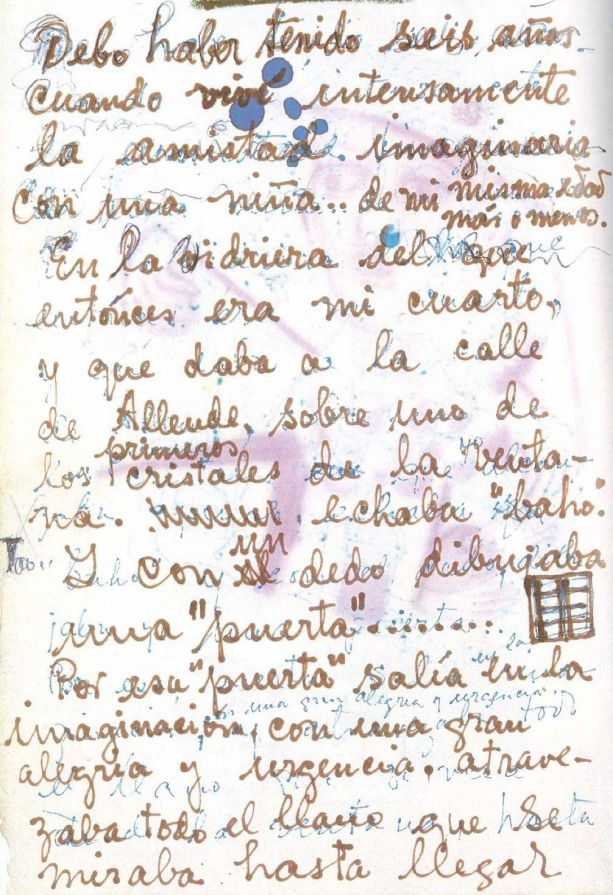 Debo haber tenido seis años
cuando viví intensamente
la amistad imaginaria
con una niña.. de mi misma edad
más o menos.
En la vidriera del que
entónces era mi cuarto,
y que daba a la calle
de Allende, sobre uno de
los primeros cristales de la venta-
na. echaba "baho".
Y con un dedo dibujaba
una "puerta".........
Por esa "puerta" salía en la
imaginación, con una gran
alegría y urgencia. atrave-
zaba todo el llano que se
miraba hasta llegar